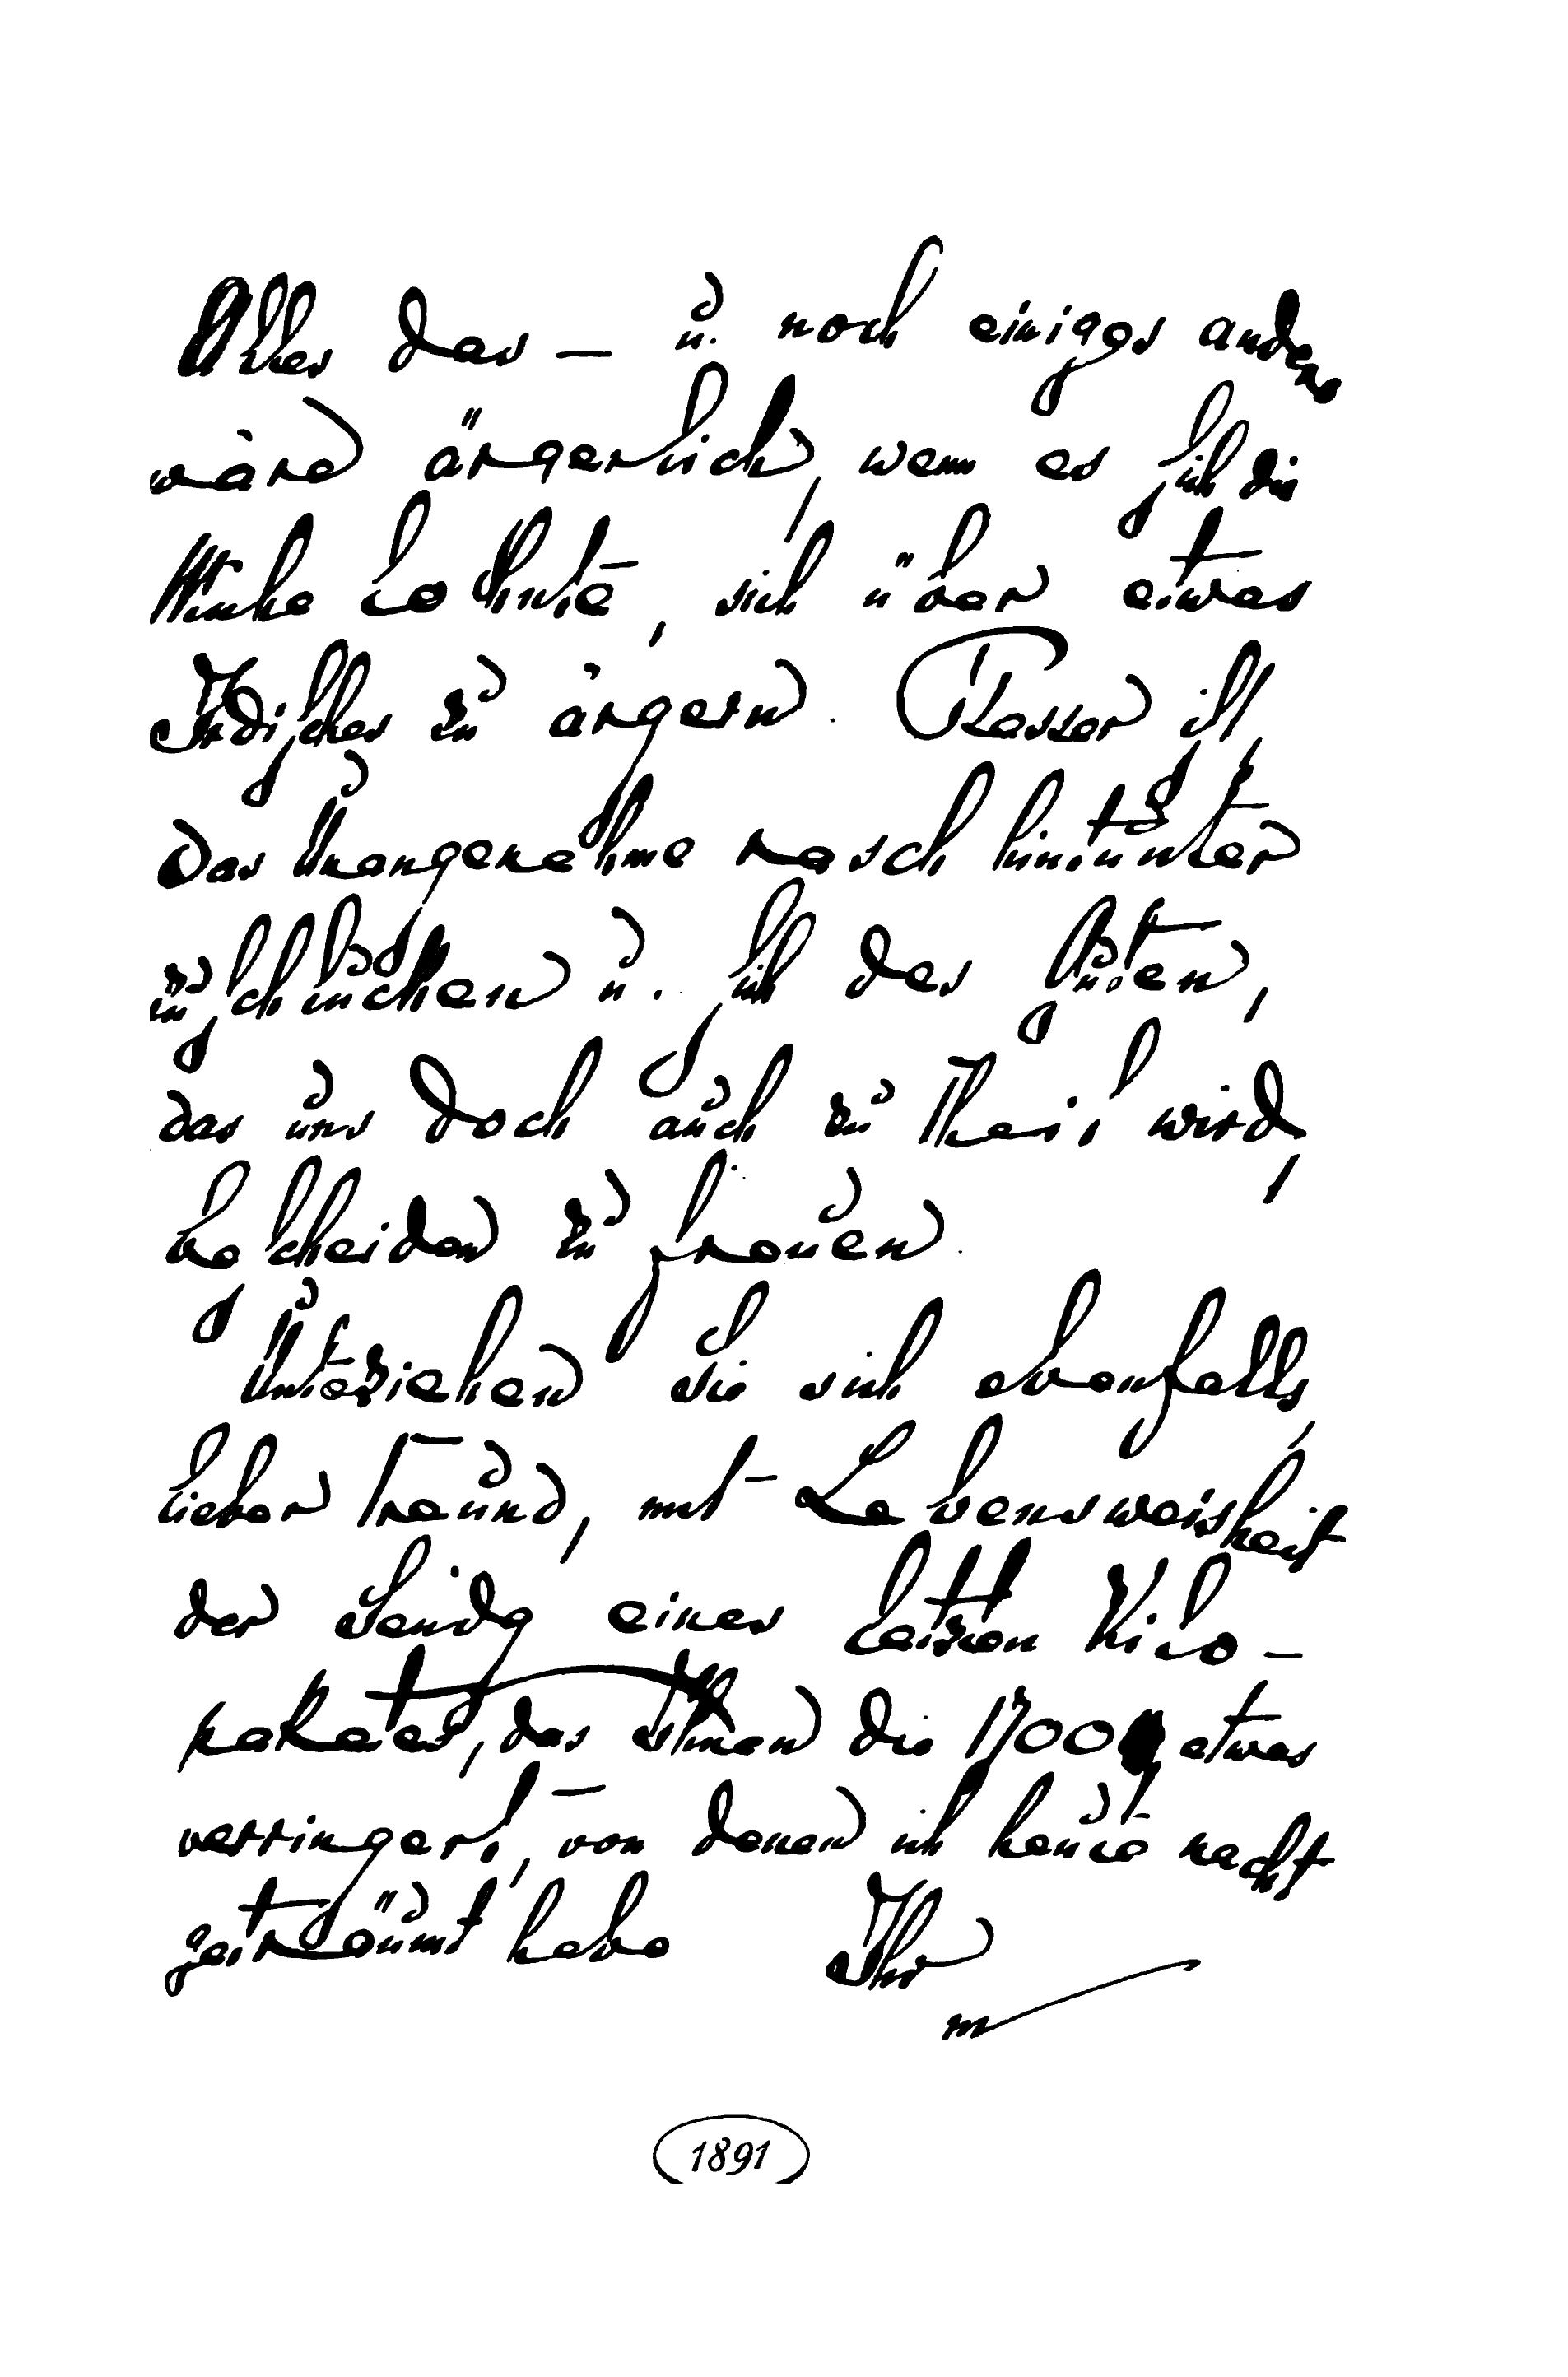 Alles das – u. noch einiges andere
wäre ärgerlich, wenn es sich die
Mühe lohnte, sich über etwas
Irdisches zu ärgern. Besser ist,
das Unangenehme rasch hinunter
zu schlucken u. sich des Guten,
das uns doch auch zu Theil wird,
bescheiden zu freuen.
Unterziehen Sie sich ebenfalls,
lieber Freund, mit Lebensweisheit
der Sendg eines letzten Kilo-
paketes, das Ihnen die 1700 etwas
verringert, von denen ich heute nacht
geträumt habe Ihr
m
1891